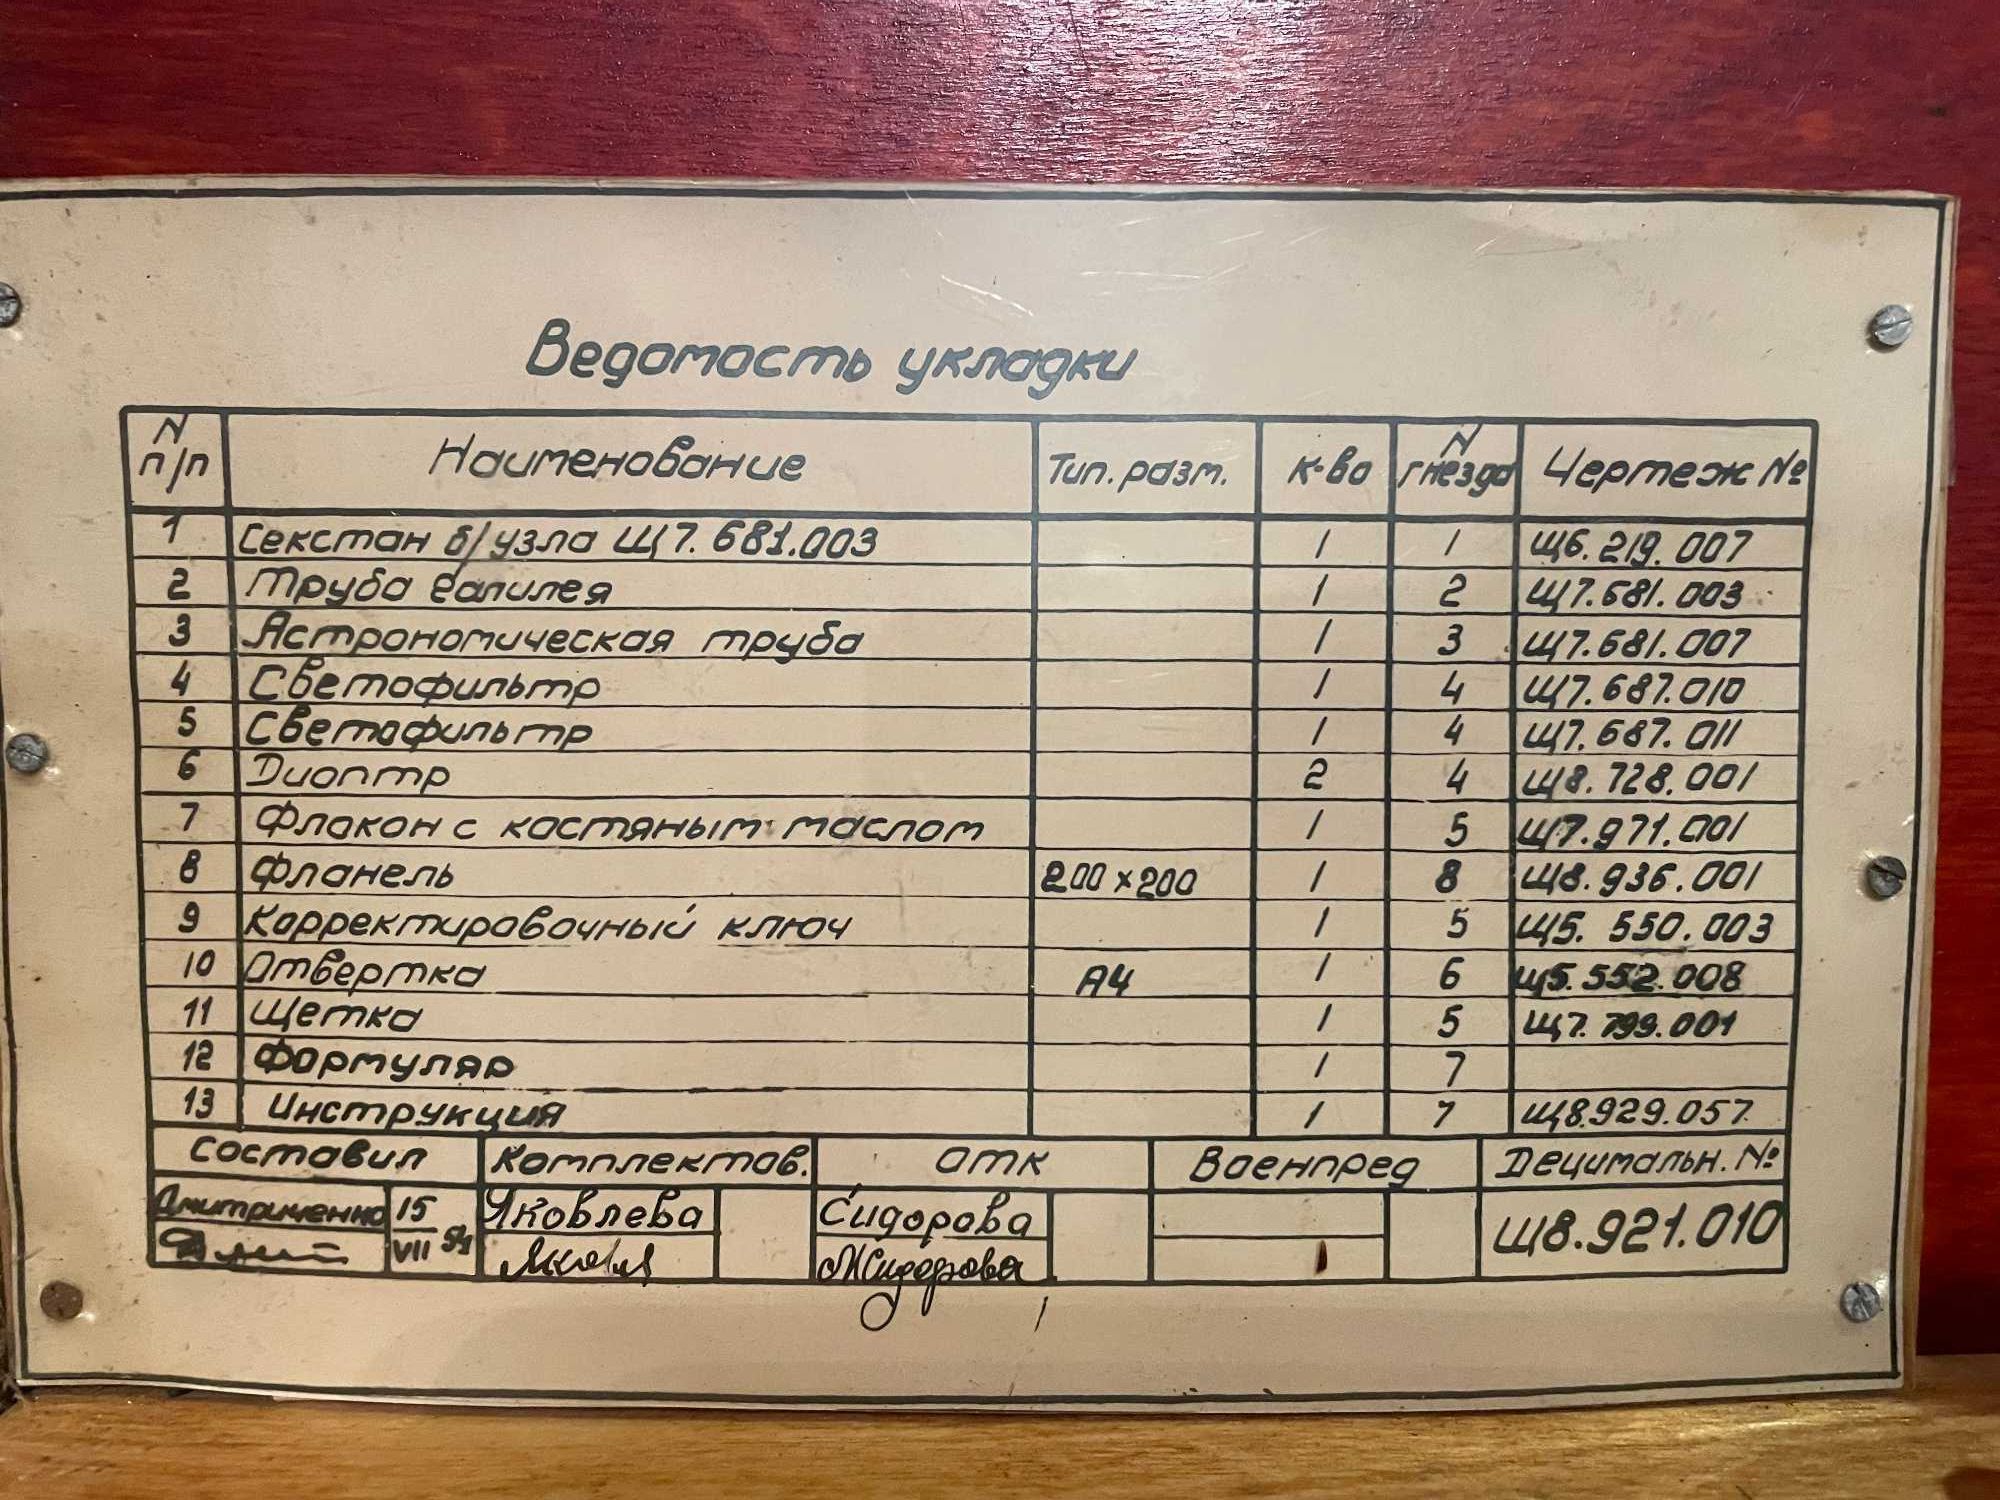 Ведомость укладки
N п/п Наименование Тип. разм. к-во N гнезда Чертеж №
1 Секстан б/узла Щ7.681.003 1 1 Щ6.219.007
2 Труба Галилея 1 2 Щ7.681.003
3 Астрономическая труба 1 3 Щ7.681.007
4 Светофильтр 1 4 Щ7.687.010
5 Светофильтр 1 4 Щ7.687.011
6 Диоптр 2 4 Щ8.728.001
7 Флакон с костяным маслом 1 5 Щ7.971.001
8 Фланель 200×200 1 8 Щ8.936.001
9 Корректировочный ключ 1 5 Щ5.550.003
10 Отвертка А4 1 6 Щ5.552.008
11 Щетка 1 5 Щ7.799.001
12 Формуляр 1 7
13 Инструкция 1 7 Щ8.929.057
Составил Комплектов. ОТК Военпред Децимальн. №
Дмитриченко 15 VII Яковлева Сидорова Щ8.921.010
МСидорова